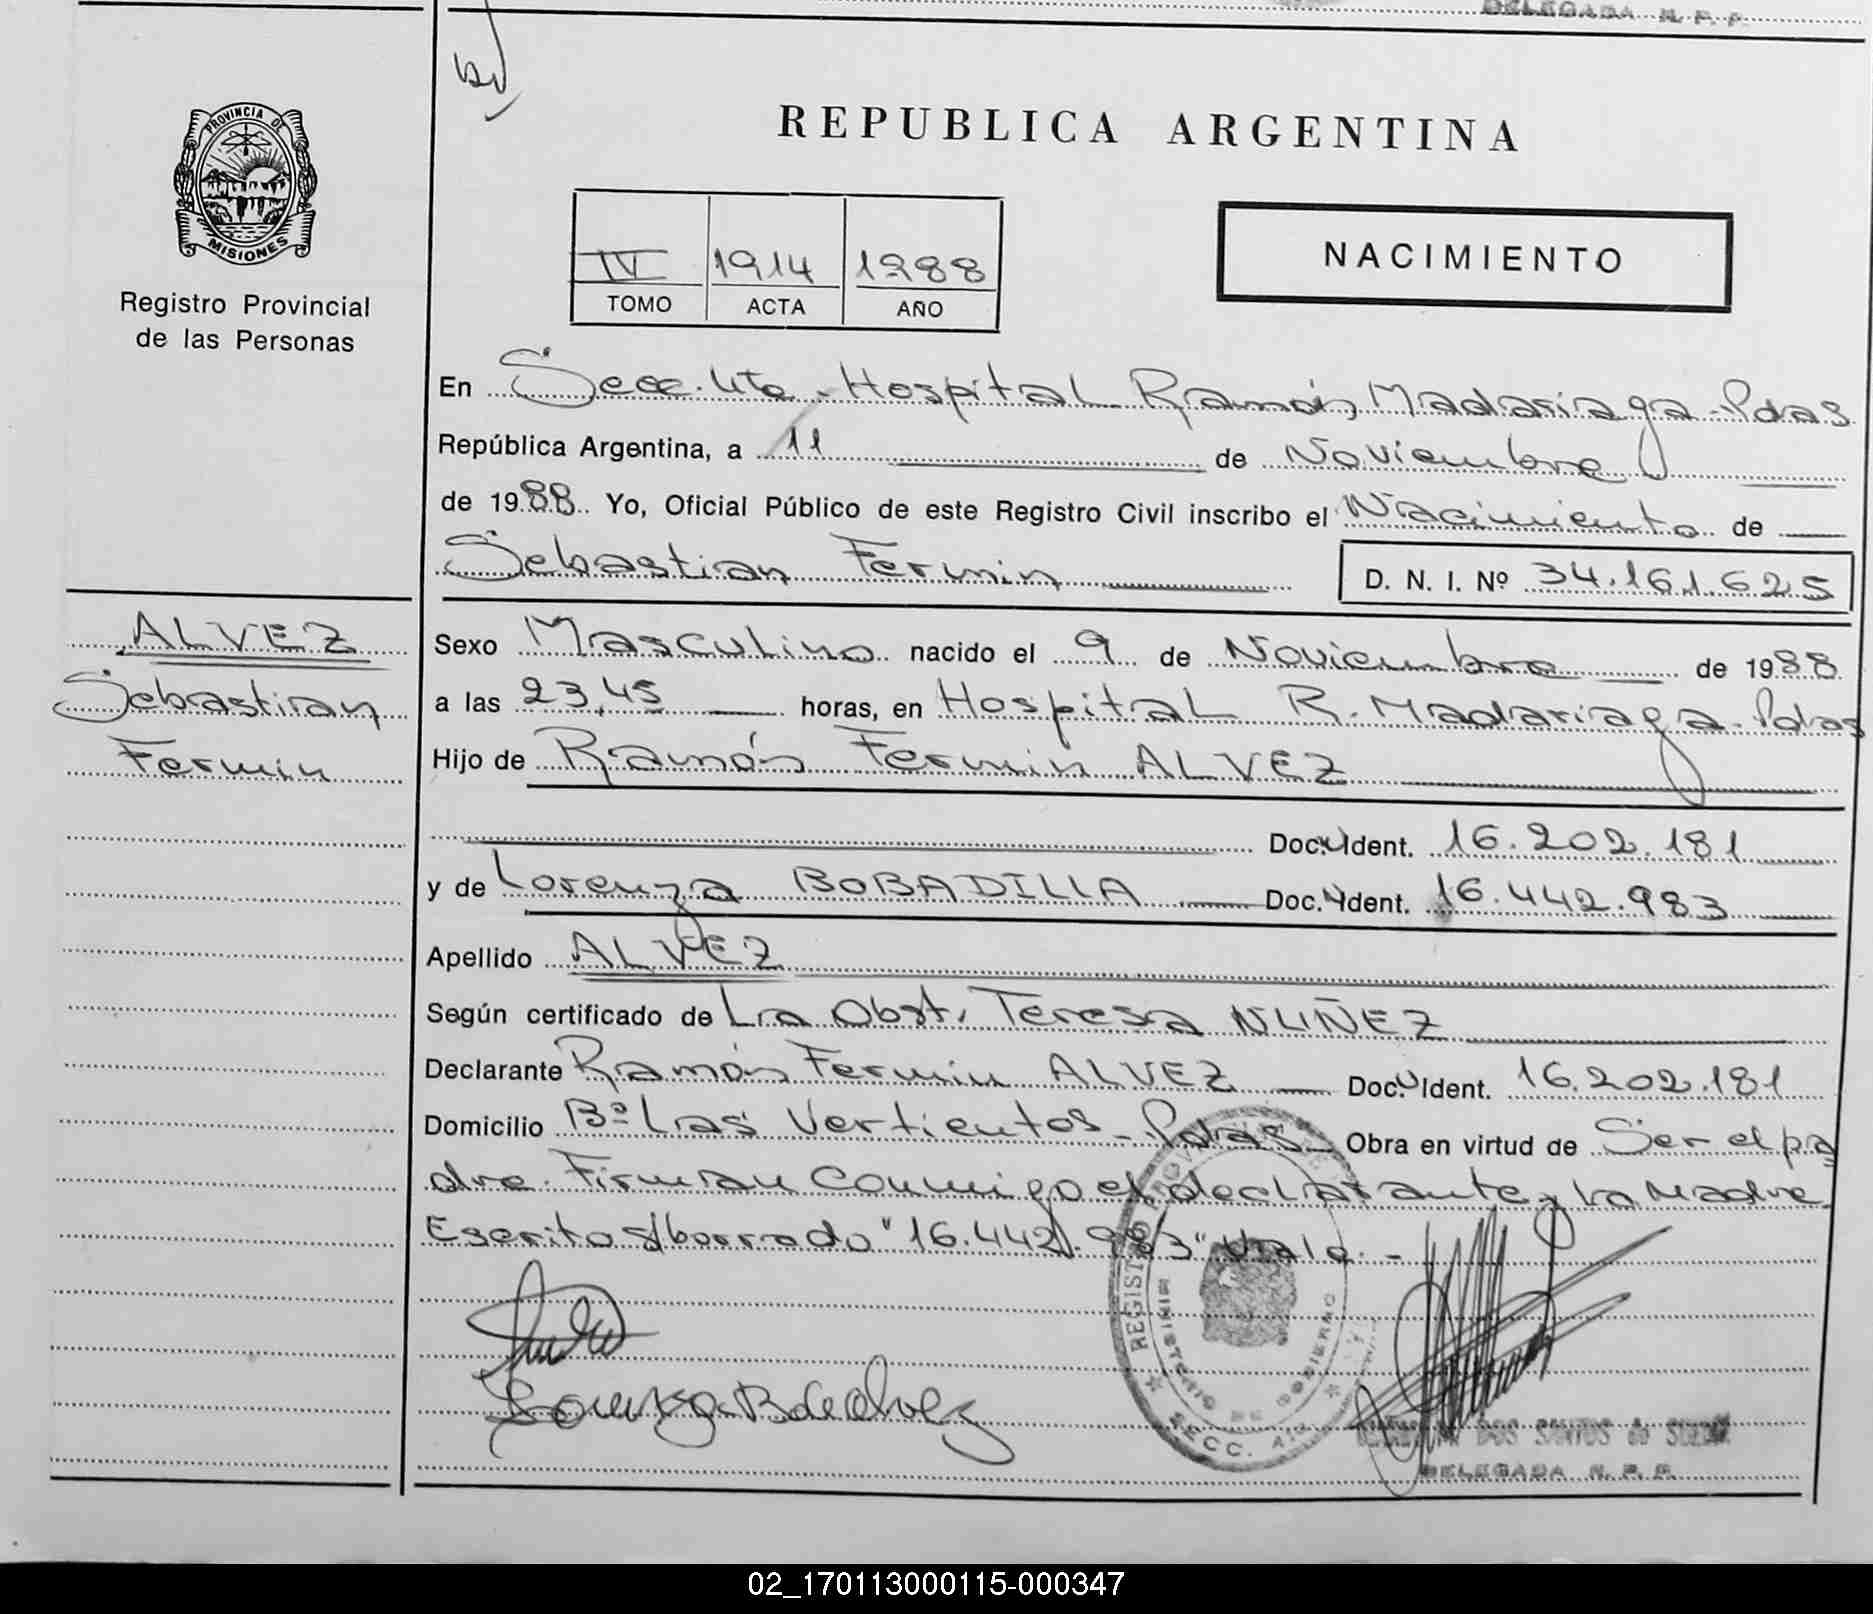 DELEGADA R. P. P.
REPUBLICA ARGENTINA
PROVINCIA DE
MISIONES
Registro Provincial
de las Personas
IV 1914 1988
TOMO ACTA AÑO
NACIMIENTO
En Secc. 4ta - Hospital Ramón Madariaga - Pdas
República Argentina, a 11 de Noviembre
de 1988. Yo, Oficial Público de este Registro Civil inscribo el Nacimiento de
Sebastian Fermin D. N. I. Nº 34.161.625
ALVEZ
Sebastian
Fermin
Sexo Masculino nacido el 9 de Noviembre de 1988
a las 23,45 horas, en Hospital R. Madariaga - Pdas
Hijo de Ramón Fermin ALVEZ
Doc. Ident. 16.202.181
y de Lorenza BOBADILLA Doc. Ident. 16.442.983
Apellido ALVEZ
Según certificado de La Obst. Teresa NUÑEZ
Declarante Ramón Fermin ALVEZ Doc. Ident. 16.202.181
Domicilio Bº Las Vertientes - Pdas Obra en virtud de Ser el pa
dre. Firman Conmigo el declarante y La Madre
Escrito s/borrado "16.442.983" Vale. -
Lorenza B de Alvez
REGISTRO PROVINCIAL DE
MINISTERIO DE GOBIERNO
SECC. 4
DOS SANTOS de
DELEGADA R. P. P.
02_170113000115-000347